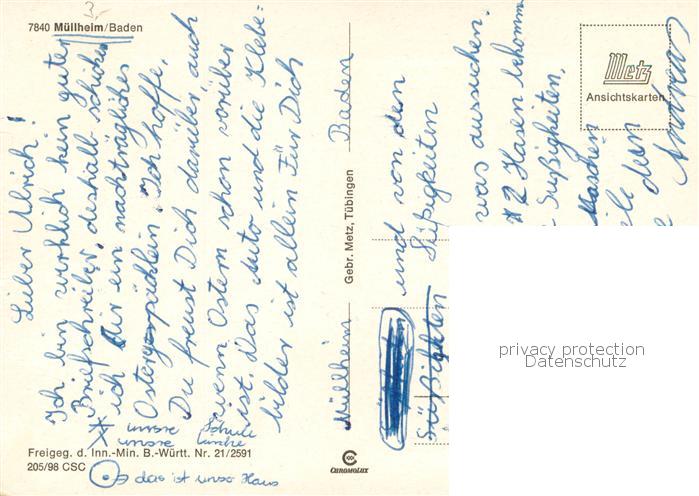 7840 Müllheim/Baden
Lieber Ulrich!
Ich bin wirklich kein guter
Briefschreiber, deshalb schicke
ich Dir ein nachträgliches
Ostergeschenklein. Ich hoffe,
Du freust Dich darüber, auch
wenn Ostern schon vorüber
ist. Das Auto und die Klebe-
bilder ist allein Für Dich
und von den
Süßigkeiten
Süßichten
was aussuchen.
2 Hasen
Süßigkeiten,
Maschen
Andreas
unsre Schule
unsre Kirche
das ist unser Haus
Müllheim Baden
Gebr. Metz, Tübingen
Metz
Ansichtskarten
Freigeg. d. Inn.-Min. B.-Württ. Nr. 21/2591
205/98 CSC
CHROMOLUX
privacy protection
Datenschutz